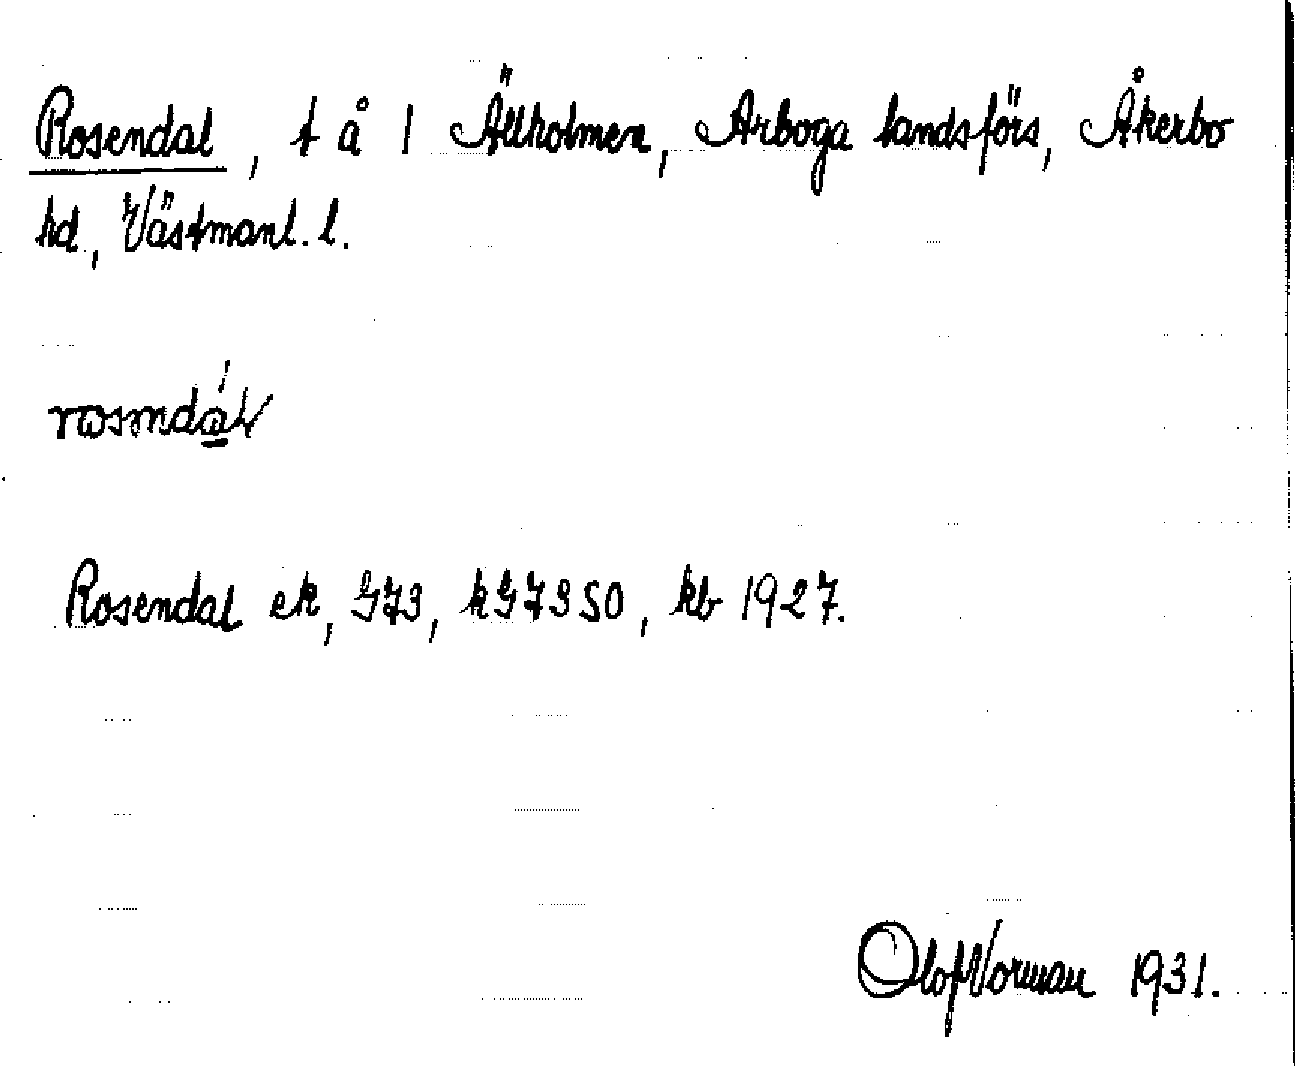 Rosendal, t å 1 Ällholmen, Arboga landsförs, Åkerbo
hd, Västmanl. l.
Rosendal ek, G73, kG7350, kb 1927.
Olof Vorman 1931.